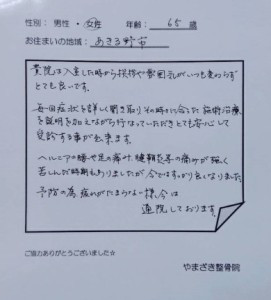 性別： 男性 ・ 女性 年齢： 65 歳
お住まいの地域： あきる野市
貴院は入室した時から挨拶や雰囲気がいつも変わらず
とても良いです。
毎回症状を詳しく聞き取りその時に合った施術治療
を説明を加えながら行なっていただきとても安心して
受診する事が出来ます。
ヘルニアの腰や足の痛み、腱鞘炎等の痛みが強く
苦しんだ時期もありましたが今ではすっかり良くなりました。
予防の為、疲れがたまらない様、今は
通院しております。
ご協力ありがとうございました☆
やまざき整骨院